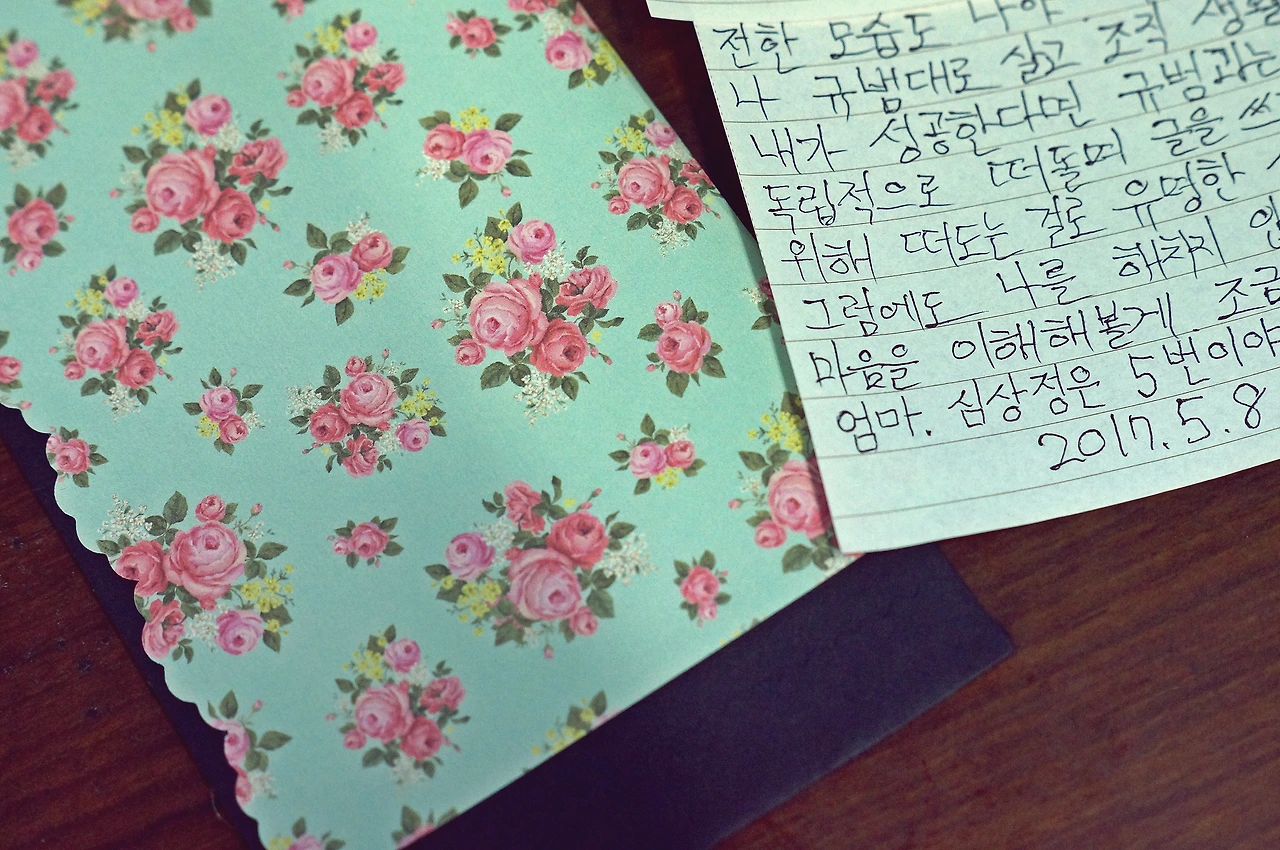 전한 모습도 나야.
나 규범대로 살고 조직 생활
내가 성공한다면 규범과는
독립적으로 떠돌며 글을 쓰
위해 떠도는 걸로 유명한
그럼에도 나를 해치지
마음을 이해해볼게. 조금
엄마. 십상정은 5번이야
2017.5.8